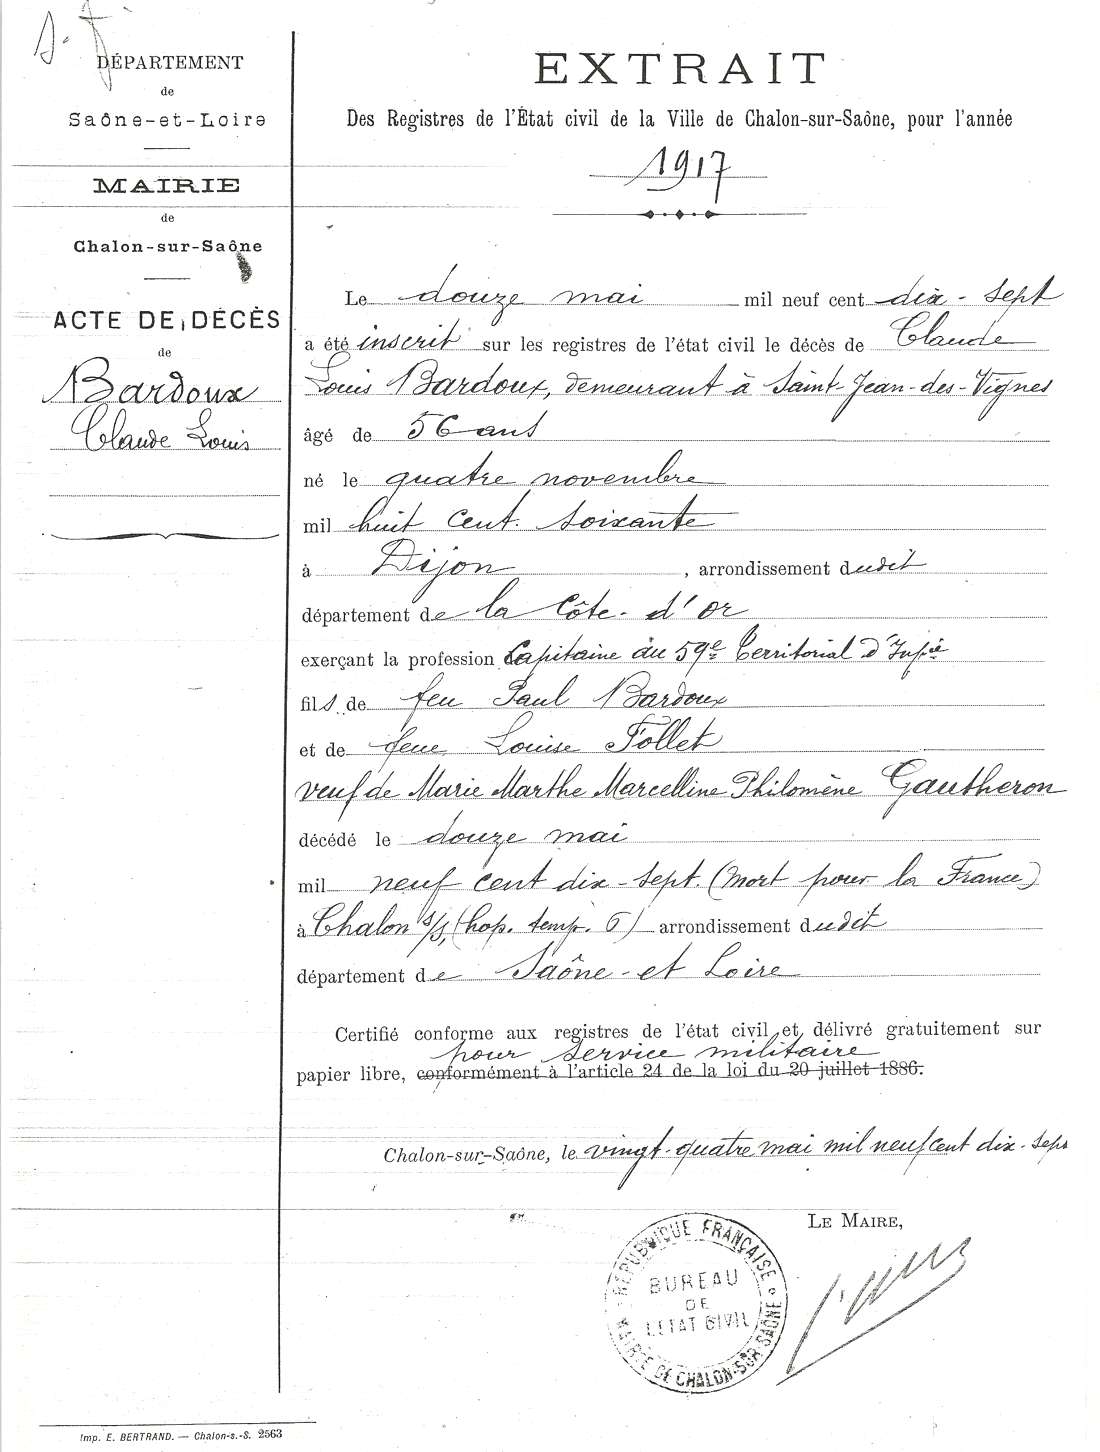 DÉPARTEMENT
de
Saône-et-Loire
MAIRIE
de
Chalon-sur-Saône
ACTE DE DÉCÈS
de
Bardoux
Claude Louis
EXTRAIT
Des Registres de l'État civil de la Ville de Chalon-sur-Saône, pour l'année
1917
Le douze mai mil neuf cent dix-sept
a été inscrit sur les registres de l'état civil le décès de Claude
Louis Bardoux, demeurant à Saint-Jean-des-Vignes
âgé de 56 ans
né le quatre novembre
mil huit cent soixante
à Dijon, arrondissement dudit
département de la Côte-d'Or
exerçant la profession Capitaine au 59e Territorial d'Infie
fils de feu Paul Bardoux
et de feue Louise Follet
veuf de Marie Marthe Marcelline Philomène Gautheron
décédé le douze mai
mil neuf cent dix-sept. (Mort pour la France)
à Chalon s/s, (hop. temp. 6) arrondissement dudit
département de Saône-et Loire
Certifié conforme aux registres de l'état civil et délivré gratuitement sur
pour service militaire
papier libre, conformément à l'article 24 de la loi du 20 juillet 1886.
Chalon-sur-Saône, le vingt-quatre mai mil neuf cent dix-sept
LE MAIRE,
RÉPUBLIQUE FRANÇAISE
BUREAU
DE
L'ETAT CIVIL
MAIRIE DE CHALON-SUR-SAÔNE
Imp. E. BERTRAND. — Chalon-s.-S. 2563